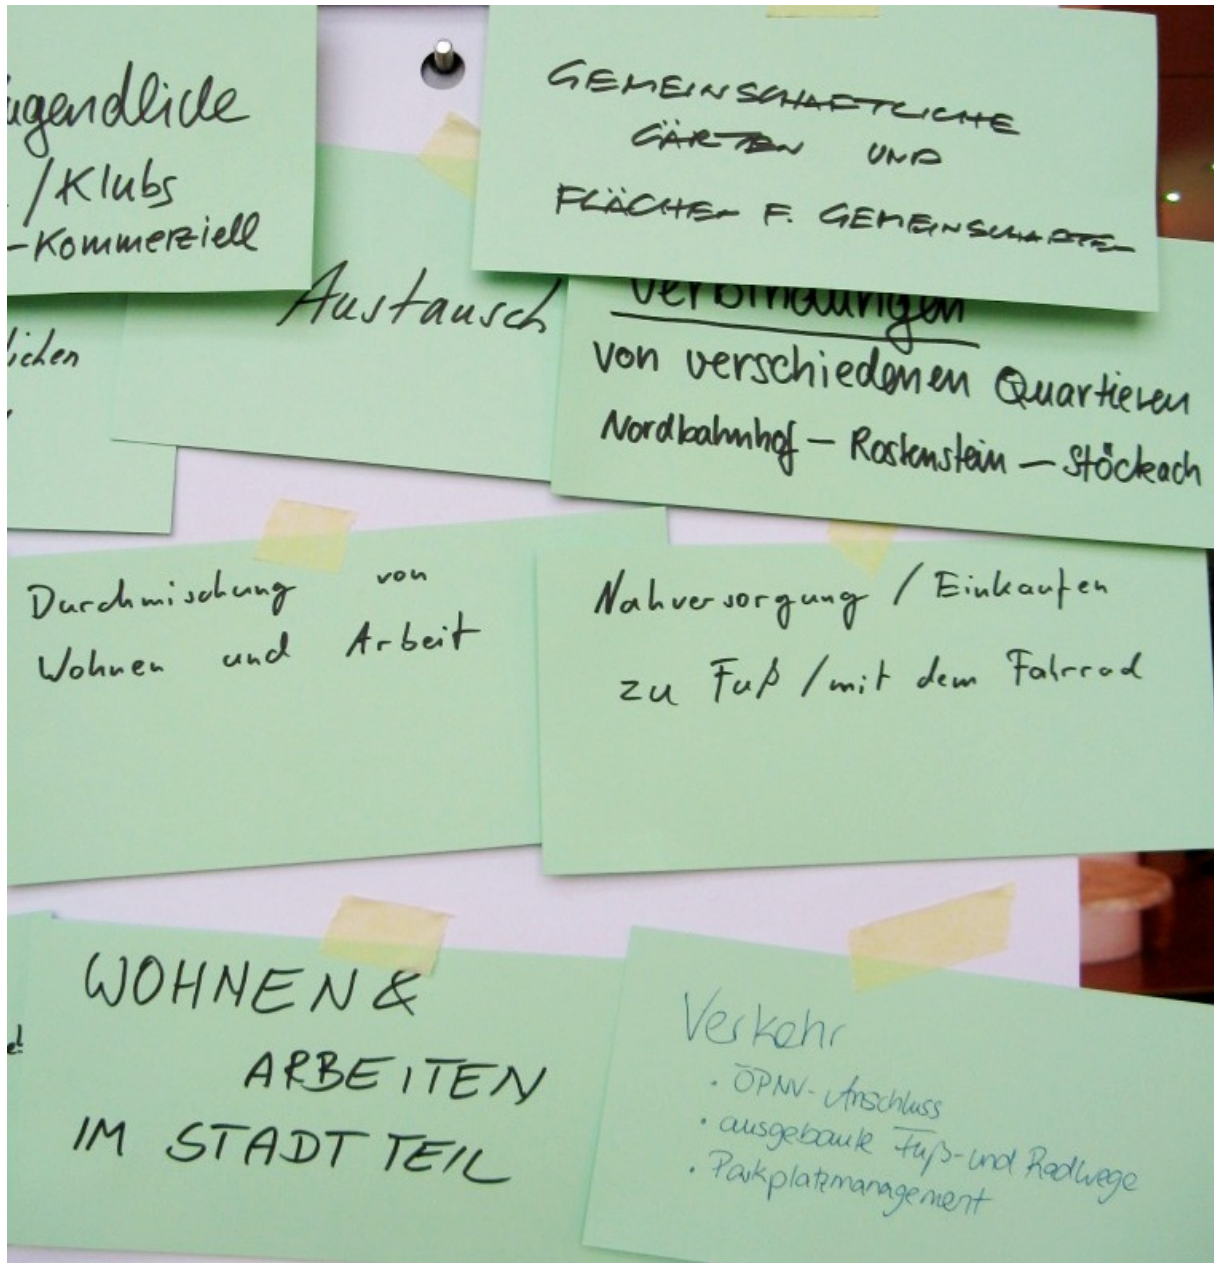 ugendliche
/Klubs
-Kommerziell
GEMEINSCHAFTLICHE
GÄRTEN UND
FLÄCHEN F. GEMEINSCHAFTEN
lichen
Austausch
Verbindungen
von verschiedenen Quartieren
Nordbahnhof - Rosenstein - Stöckach
Durchmischung von
Wohnen und Arbeit
Nahversorgung / Einkaufen
zu Fuß / mit dem Fahrrad
WOHNEN &
ARBEITEN
IM STADTTEIL
Verkehr
· ÖPNV-Anschluss
· ausgebaute Fuß- und Radwege
· Parkplatzmanagement